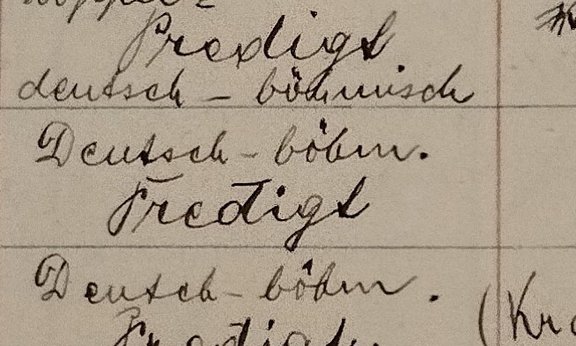 Predigt
deutsch - böhmisch
Deutsch - böhm.
Predigt
Deutsch - böhm.
Predigt